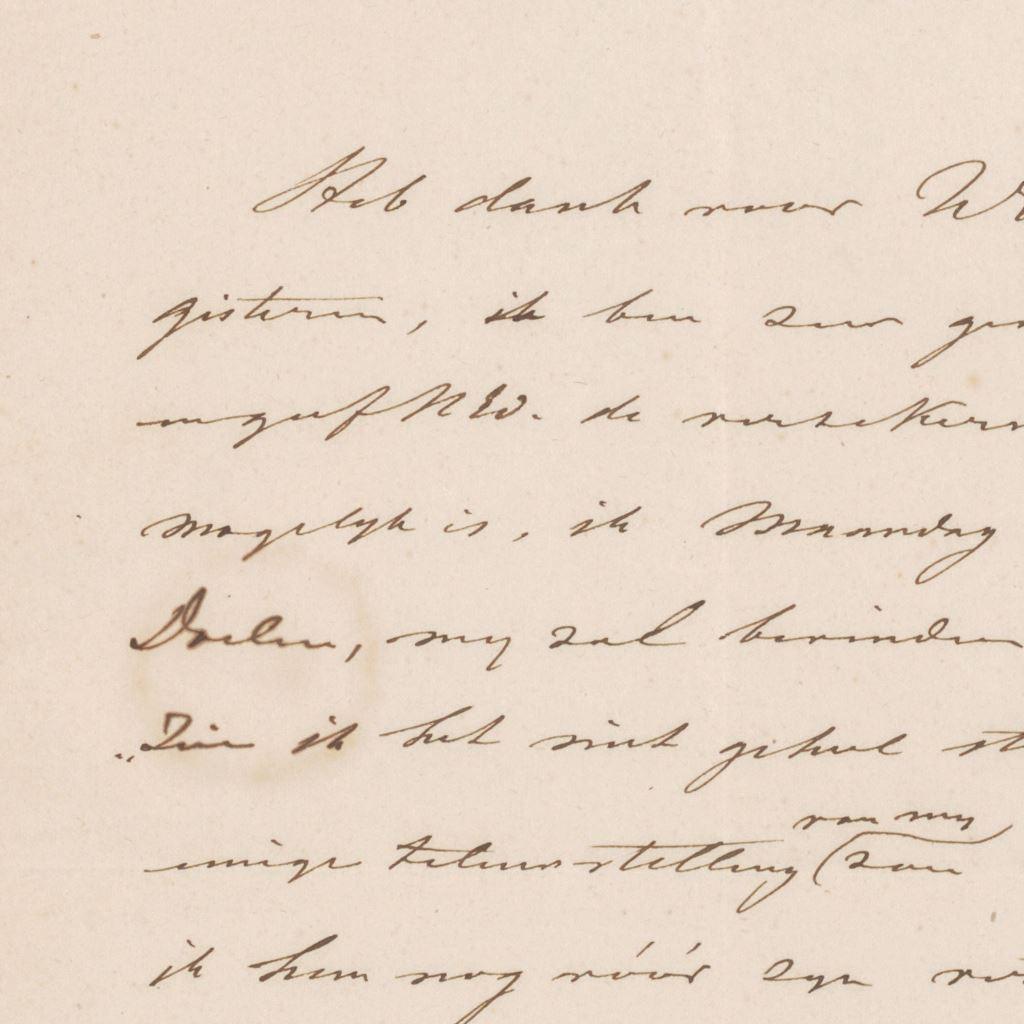 Heb dank voor
gisteren, ik ben zeer
en geef UEd. de verzeker
mogelyk is, ik Maandag
Doelen, my zal bevinden
"Zie ik het niet geheel st
van my
eenige teleurstelling (zou
ik hem nog vóór zyn ver